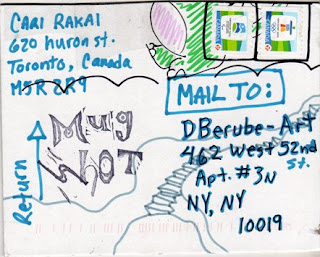 CARI RAKAI
620 huron st.
Toronto, Canada
M5R 2R9
MAIL TO:
Mug
SHOT
Return
DBerube-Art
462 West 52nd
St.
Apt. # 3N
NY, NY
10019